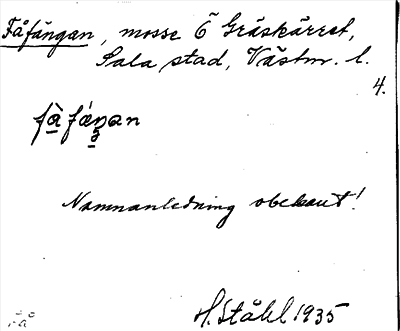 Fåfängan, mosse Ö Gräskärret,
Sala stad, Västm. l.
4.
fà̱fáŋan
Namnanledning obekant!
H. Ståhl 1935